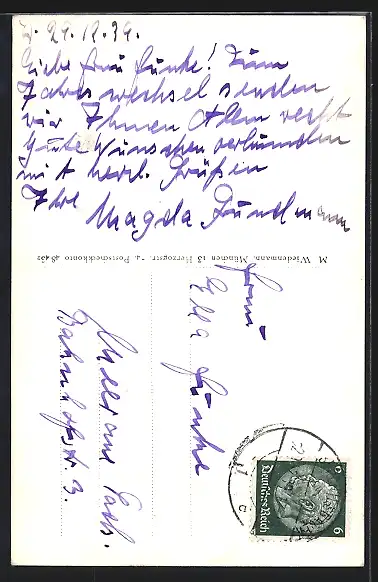 29.12.39.
Liebe Frau Funke! Zum
Jahreswechsel senden
wir Ihnen Allen recht
gute Wünschen verbunden
mit herzl. Grüßen
Ihre
Magda
M. Wiedermann, München 13 Herzogstr. Postscheckkonto
Frau
Ella Funke
Bahnhofstr. 3.
Deutsches Reich
6